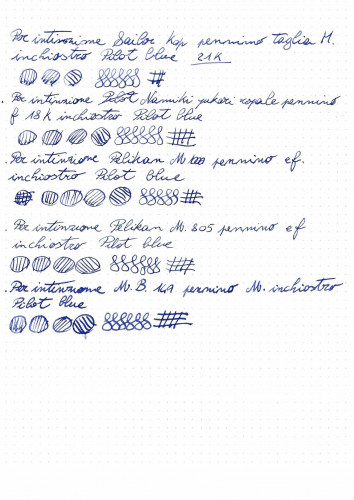 Per intinzione Sailor Kop pennino taglia M.
inchiostro Pilot blue 21K
. Per intinzione Pilot Namiki yukari royale pennino
f 18K inchiostro Pilot blue
. Per intinzione Pelikan M pennino ef.
inchiostro Pilot blue
. Per intinzione Pelikan M. 805 pennino ef
inchiostro Pilot blue
. Per intinzione M.B. 149 pennino M. inchiostro
Pilot blue